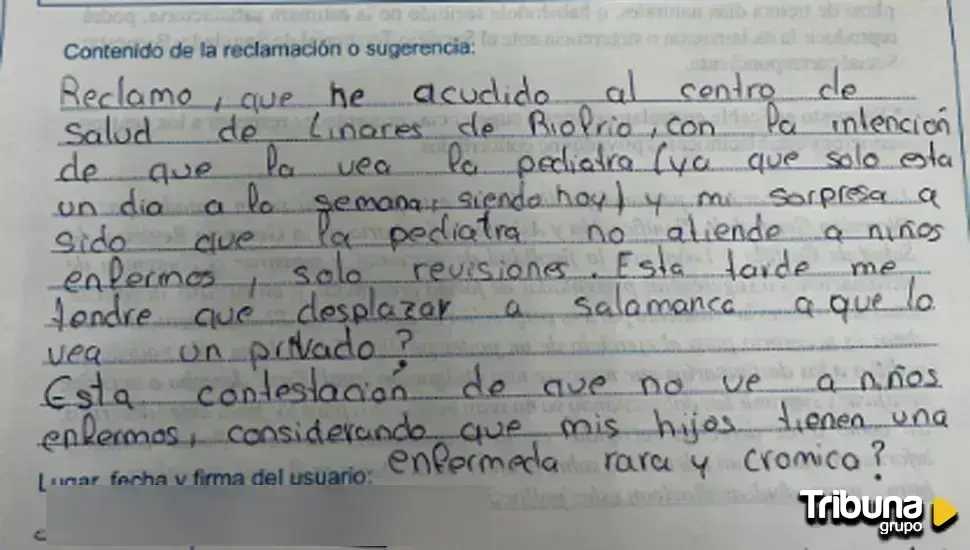 Contenido de la reclamación o sugerencia:
Reclamo, que he acudido al centro de
salud de Linares de Riofrio, con la intención
de que la vea la pediatra (ya que solo esta
un dia a la semana, siendo hoy) y mi sorpresa a
sido que la pediatra no atiende a niños
enfermos, solo revisiones. Esta tarde me
tendre que desplazar a Salamanca a que lo
vea un privado?
Esta contestación de que no ve a niños
enfermos, considerando que mis hijos tienen una
enfermeda rara y cronica?
Lugar, fecha y firma del usuario:
Tribuna
grupo